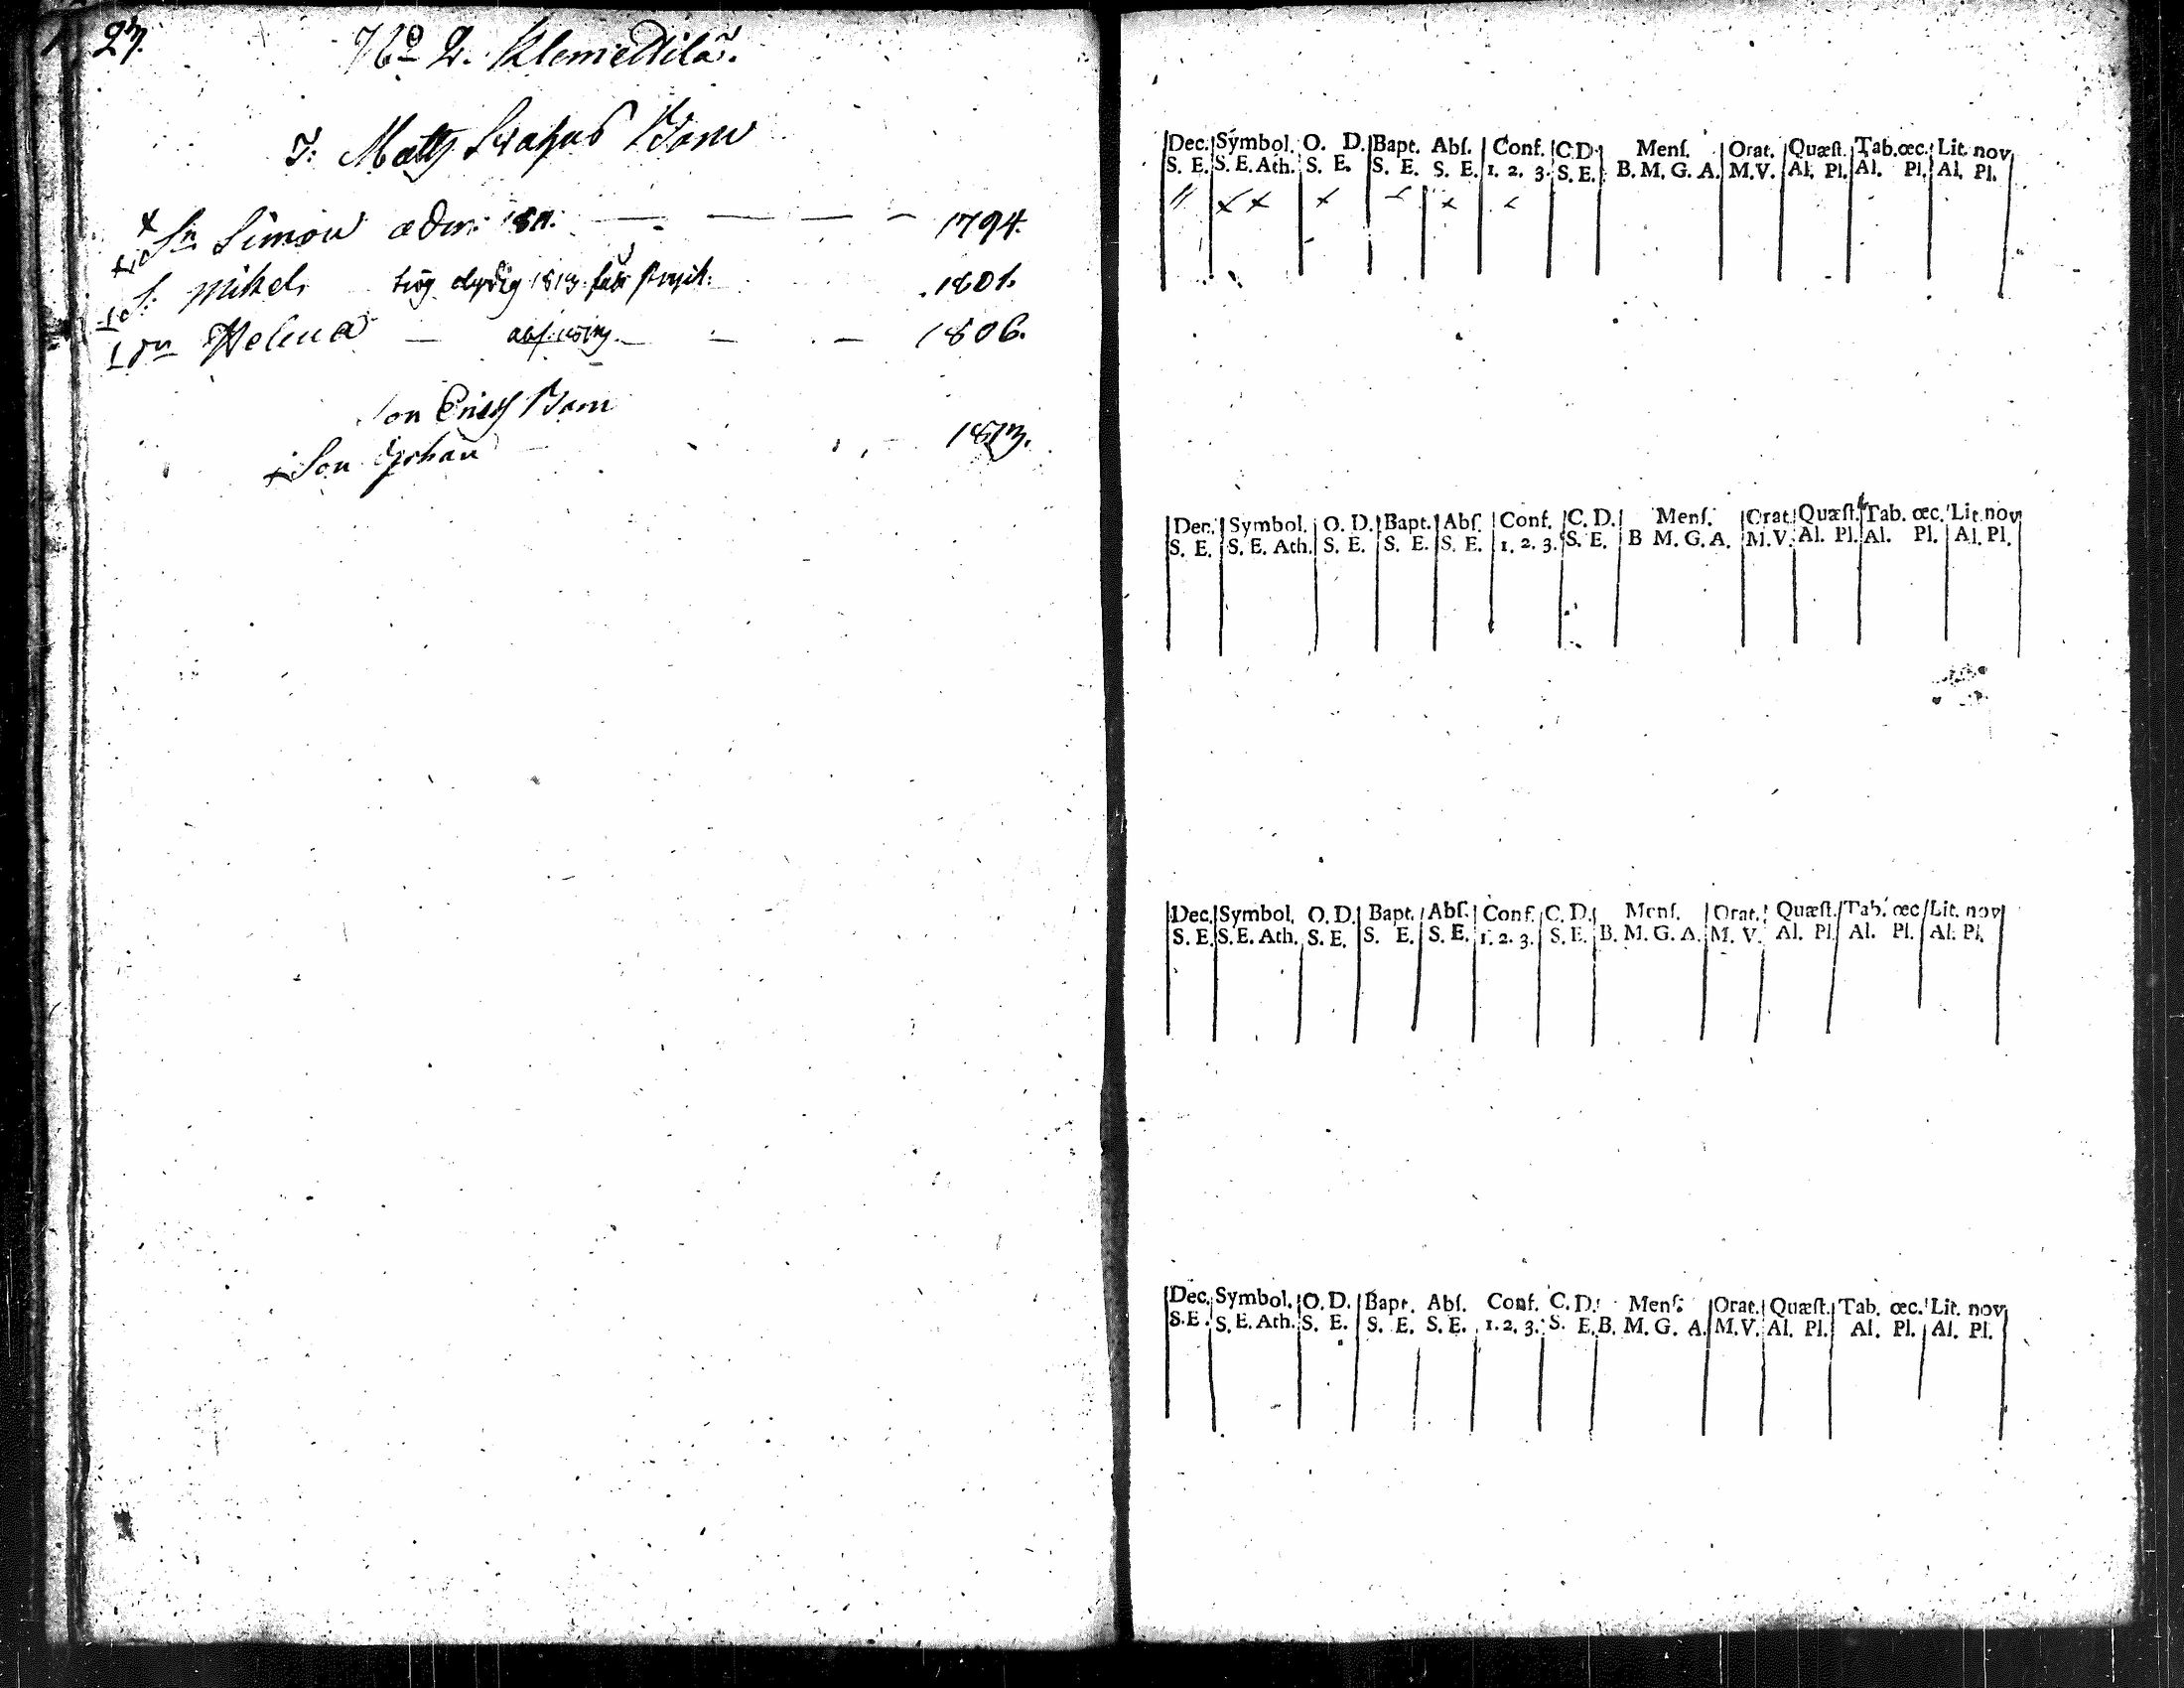 27.
No 2. Klemettilä.
T: Matts Barn
Sn Simon adm: 1811. 1794.
S: Mikel 1813 1801.
Dr Helena 1806.
Son Erichs Barn
Son Johan 1813.
Dec. Symbol. O. D. Bapt. Abſ. Conf. C.D. Menſ. Orat. Quæſt. Tab. œc. Lit. nov
S. E. S. E. Ath. S. E. S. E. S. E. 1. 2. 3. S. E. B. M. G. A. M. V. Al. Pl. Al. Pl. Al. Pl.
Dec. Symbol. O. D. Bapt. Abſ. Conf. C. D. Menſ. Orat. Quæſt. Tab. œc. Lit. nov
S. E. S. E. Ath. S. E. S. E. S. E. 1. 2. 3. S. E. B M. G. A. M. V. Al. Pl. Al. Pl. Al. Pl.
Dec. Symbol. O. D. Bapt. Abſ. Conf. C. D. Menſ. Orat. Quæſt. Tab. œc Lit. nov
S. E. S. E. Ath. S. E. S. E. S. E. 1. 2. 3. S. E. B. M. G. A. M. V. Al. Pl Al. Pl. Al. Pl.
Dec. Symbol. O. D. Bapt. Abſ. Conf. C. D. Menſ. Orat. Quæſt. Tab. œc. Lit. nov
S. E. S. E. Ath. S. E. S. E. S. E. 1. 2. 3. S. E. B. M. G. A. M. V. Al. Pl. Al. Pl. Al. Pl.